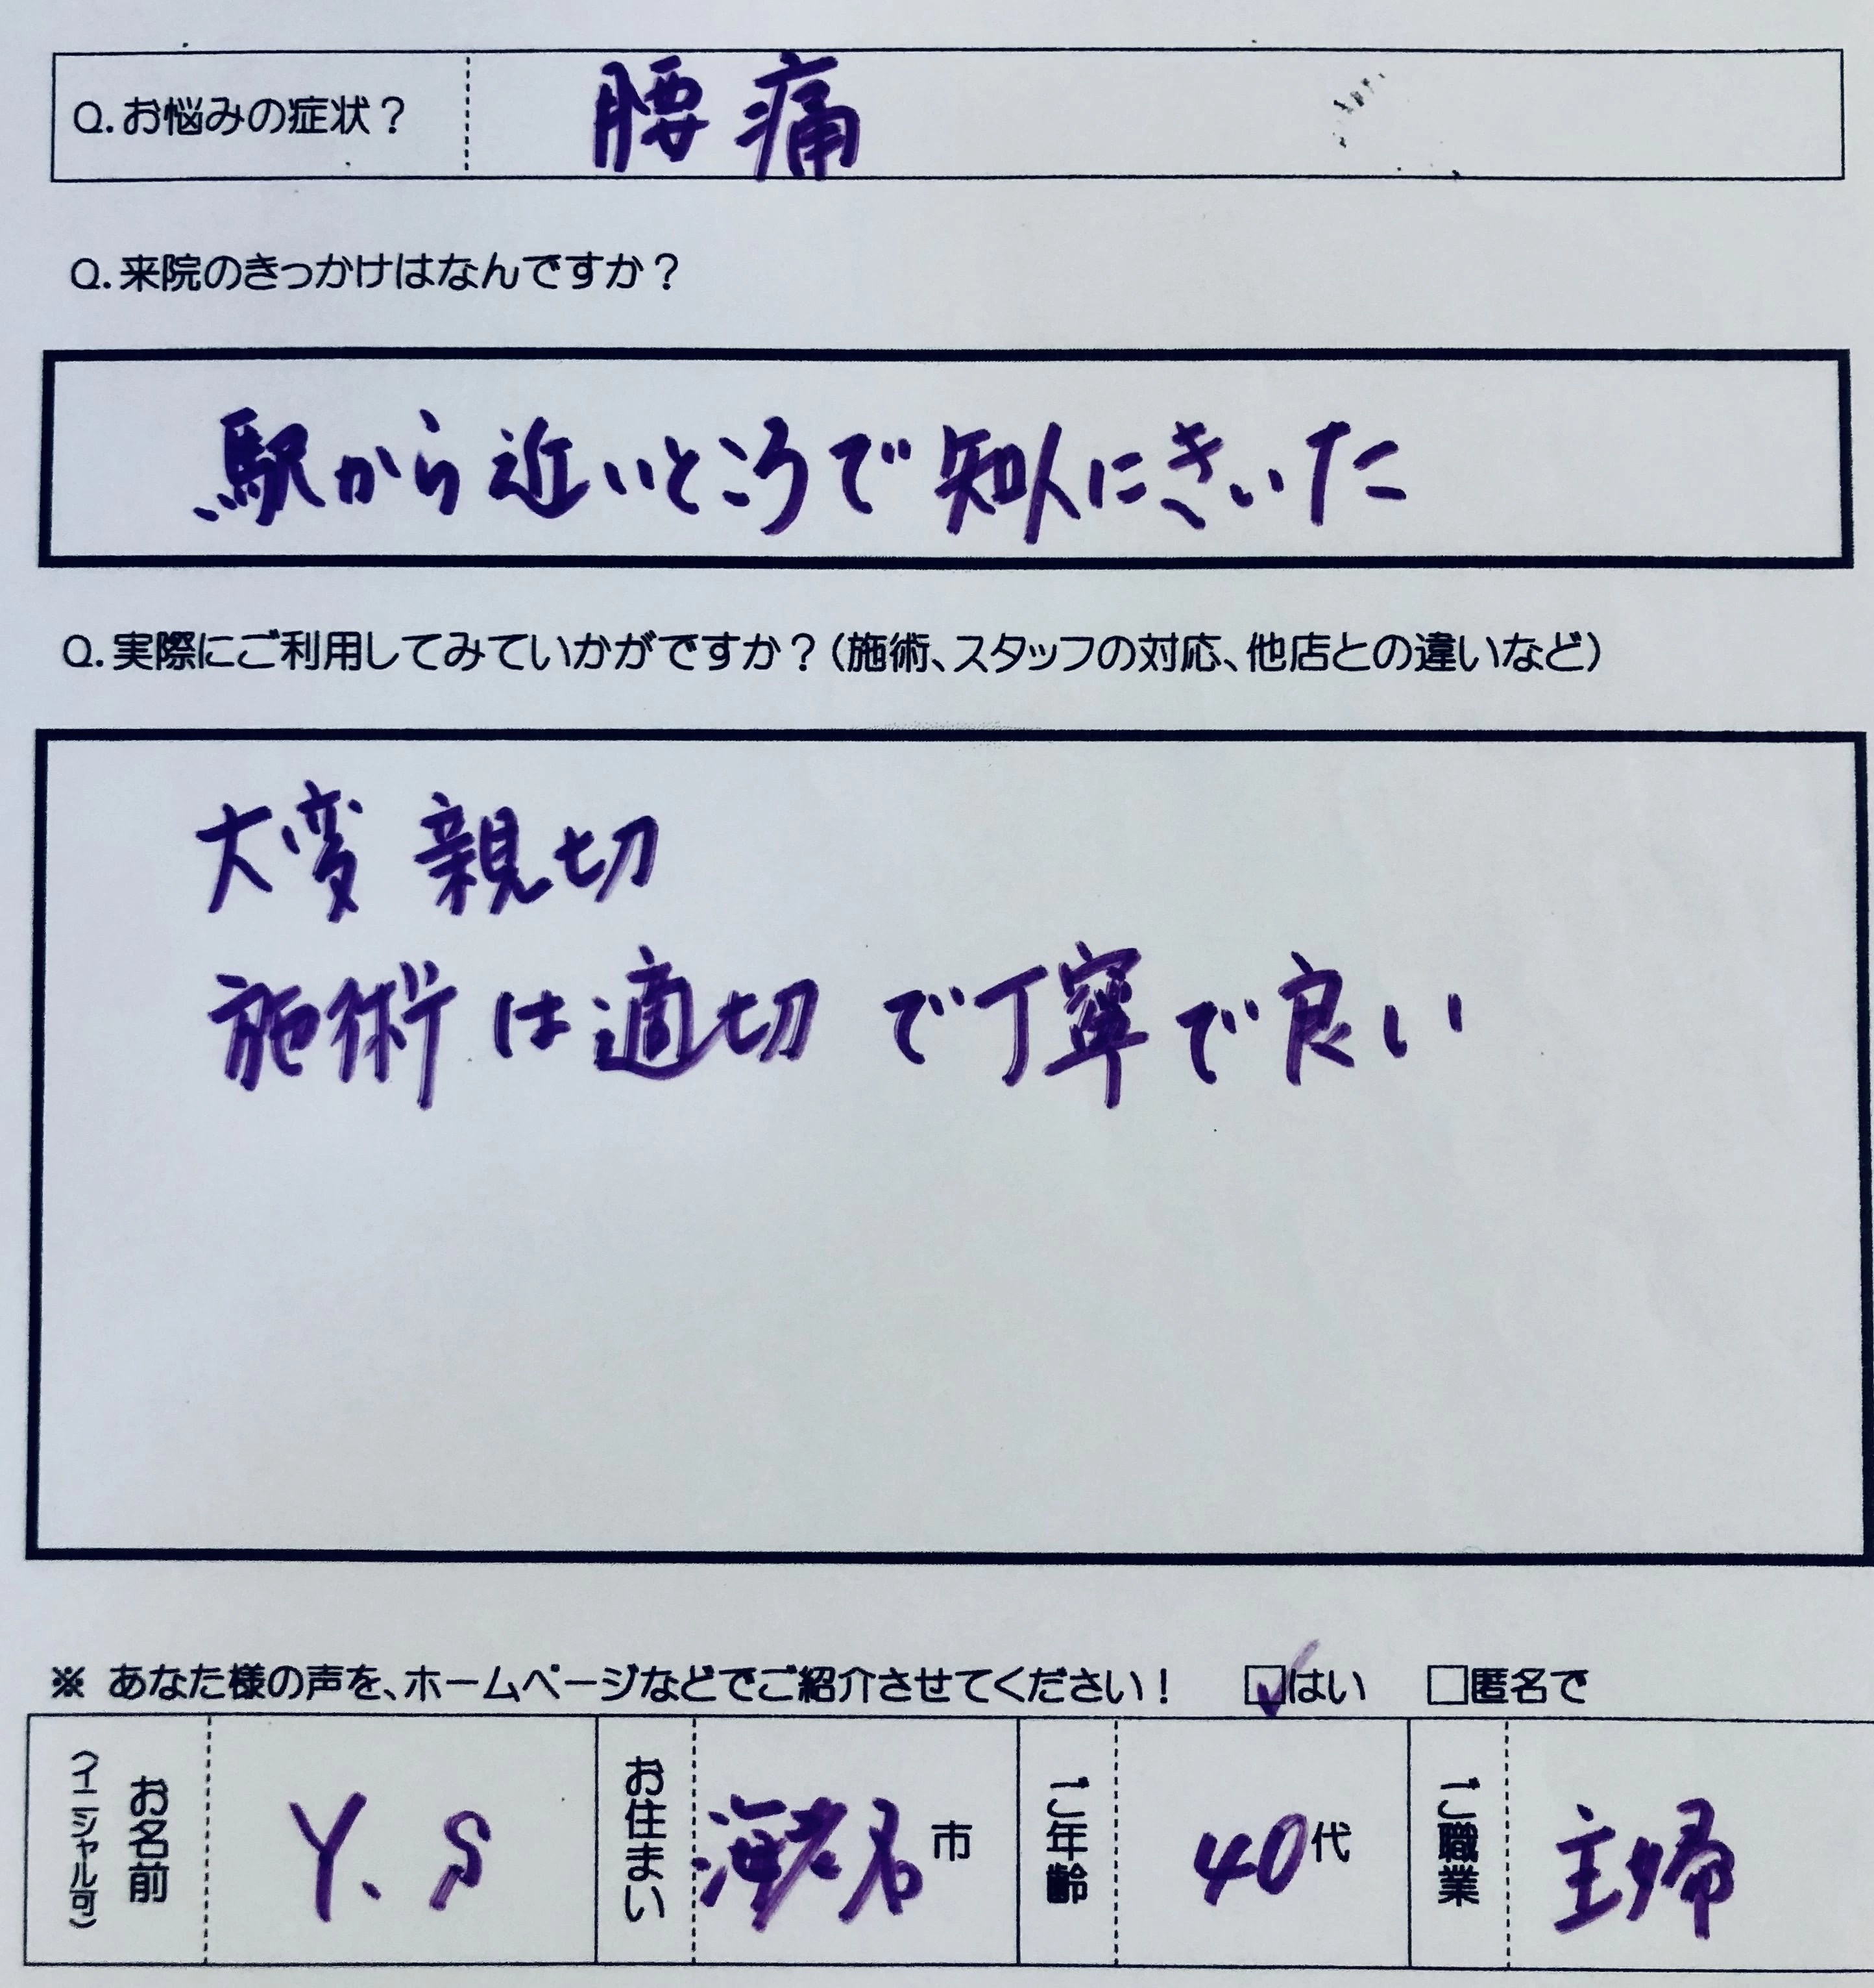 Q.お悩みの症状？ 腰痛
Q.来院のきっかけはなんですか？
駅から近いところで知人にきいた
Q.実際にご利用してみていかがですか？（施術、スタッフの対応、他店との違いなど）
大変親切
施術は適切で丁寧で良い
※ あなた様の声を、ホームページなどでご紹介させてください！ ☑はい □匿名で
お名前（イニシャル可） Y.S お住まい 海老名市 ご年齢 40代 ご職業 主婦